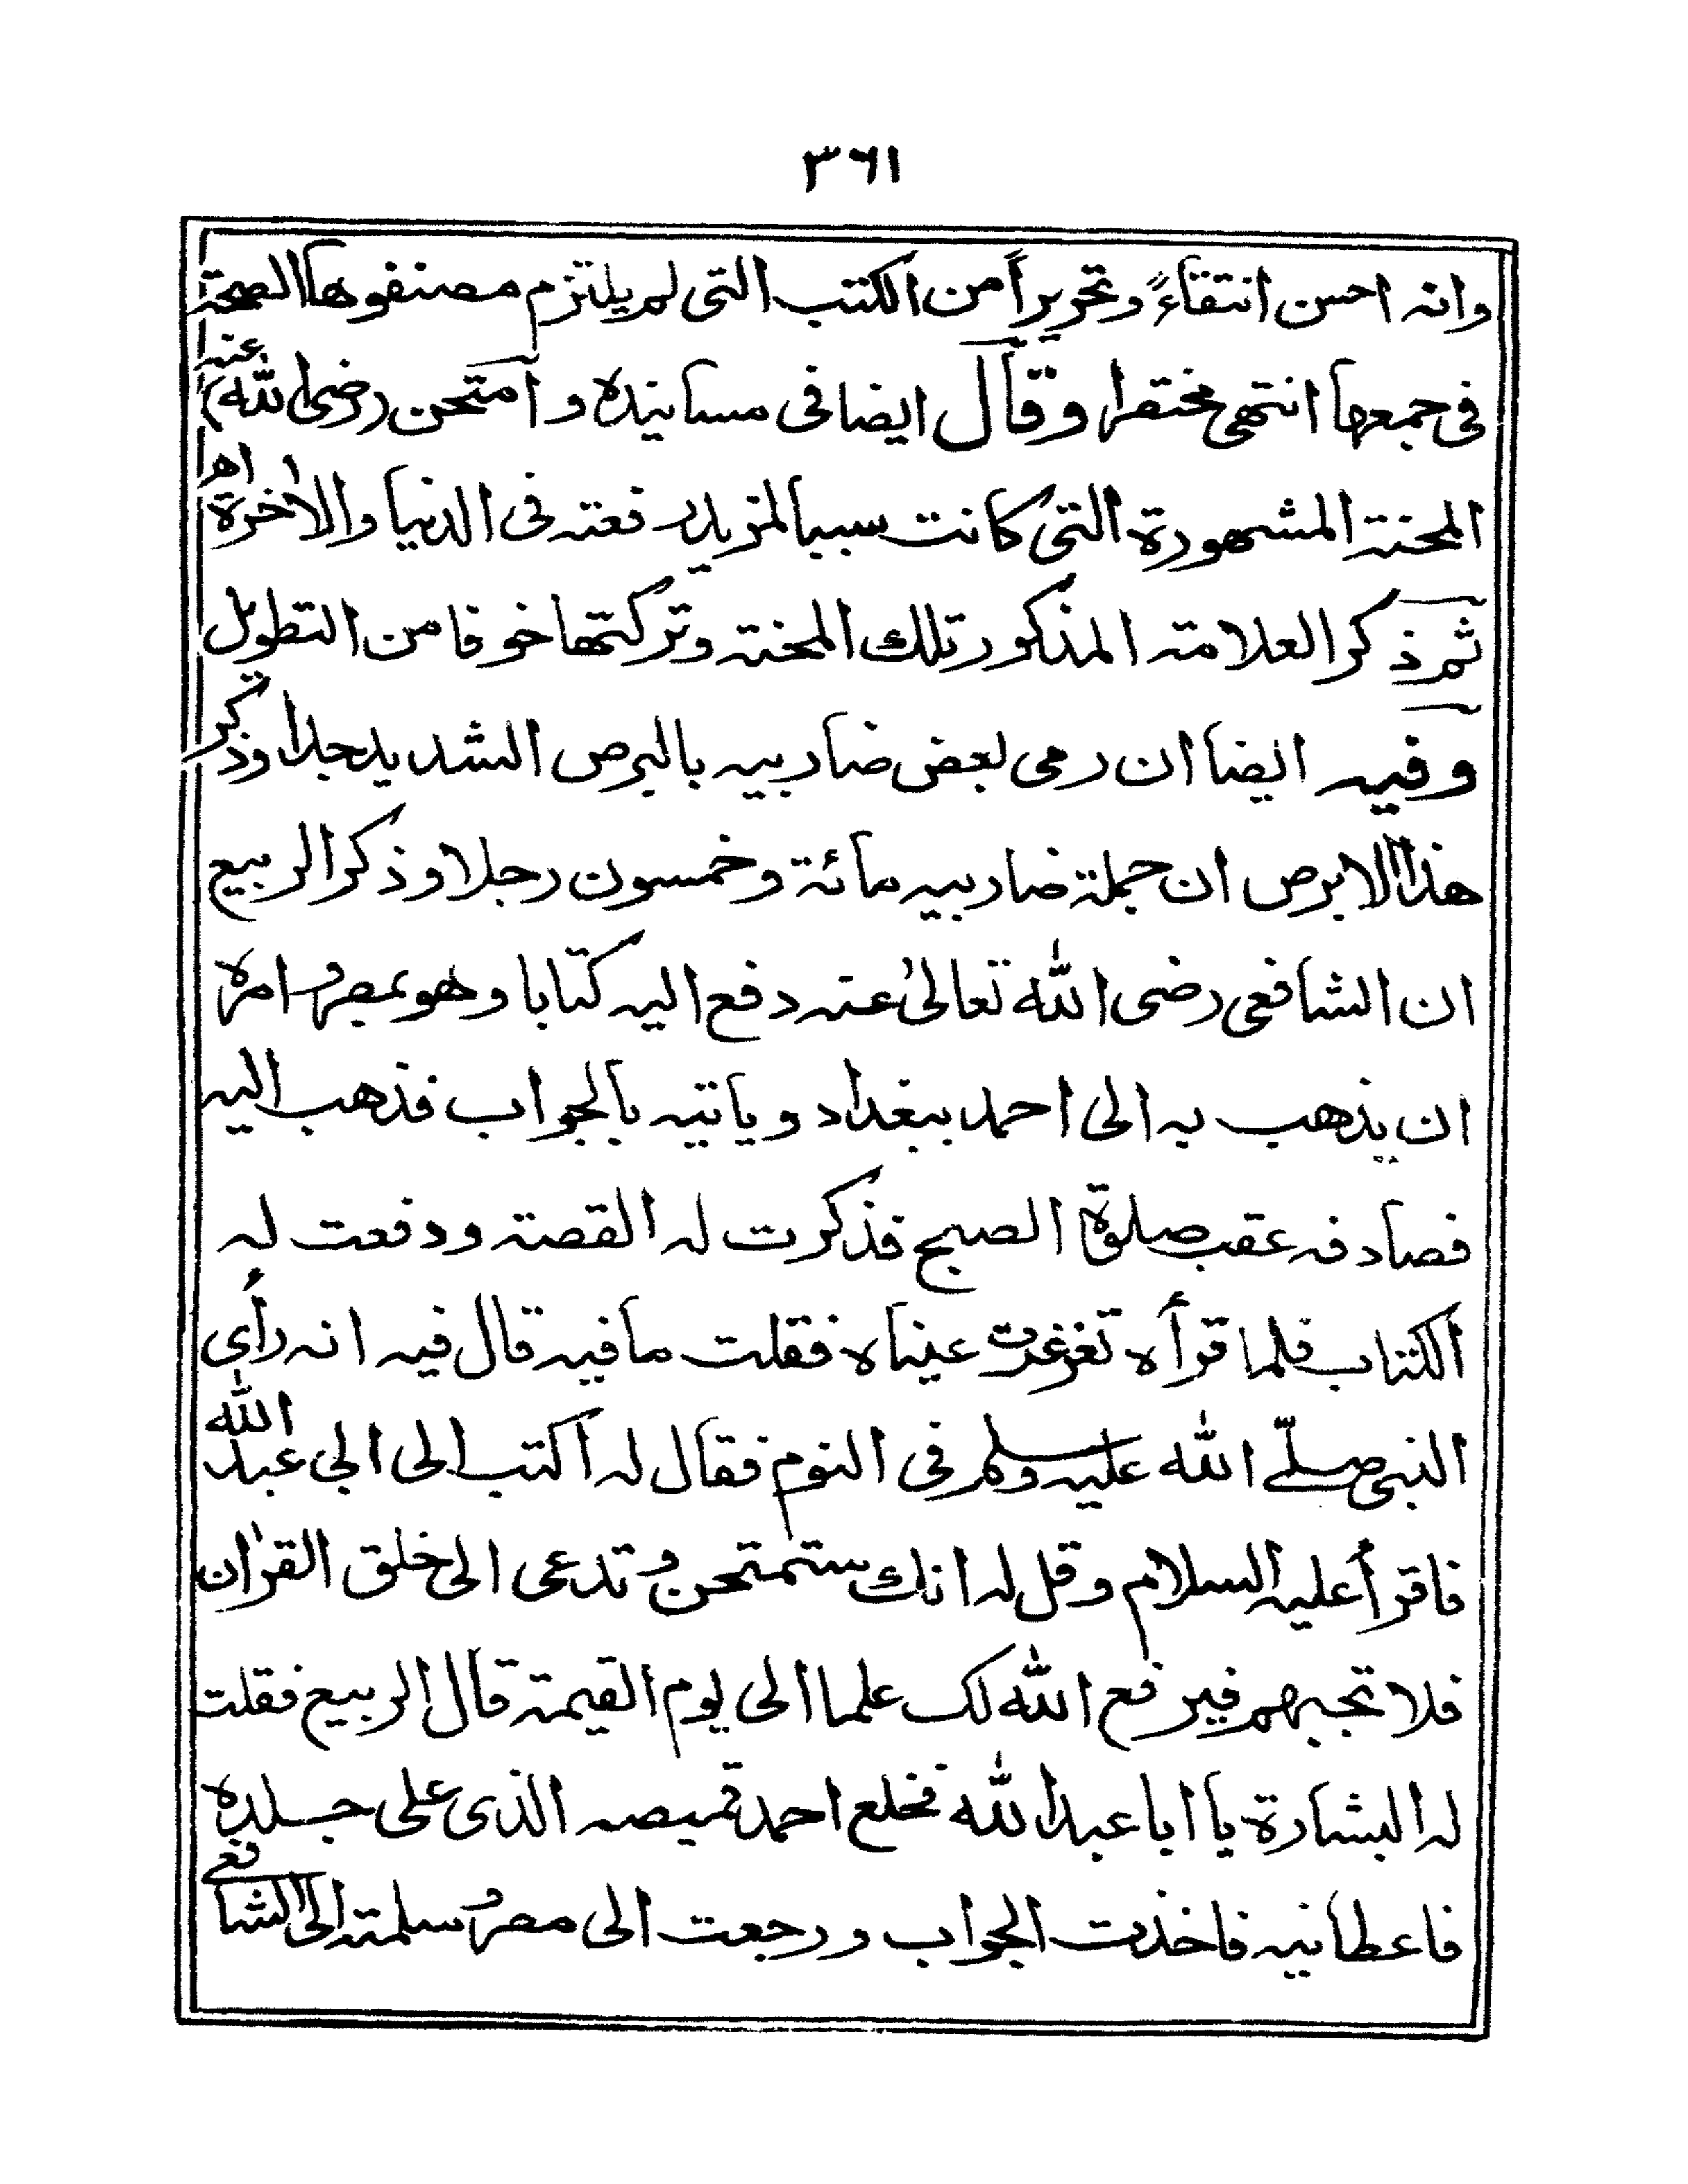 ٣٦١
وانہ احسن انتقاءً وتحريراً من الكتب التى لم يلتزم مصنفوها الصحۃ
فى جمعها انتهى مختصرا وقال ايضا فى مسانيده وامتحن (رضى الله عنہ)
المحنۃ المشهورة التى كانت سببا لمزيد رفعتہ فى الدنيا والاخرة اھ
ثم ذكر العلامۃ المذكور تلك المحنۃ وتركتها خوفا من التطويل
وفيہ ايضا ان رمى بعض ضاربيہ بالبرص الشديد جدا وذكر
هذا الابرص ان جملۃ ضاربيہ مائۃ وخمسون رجلا وذكر الربيع
ان الشافعى رضى الله تعالىٰ عنہ دفع اليہ كتابا وهو بمصر وامره
ان يذهب بہ الى احمد ببغداد ويأتيہ بالجواب فذهب اليہ
فصادفہ عقب صلوة الصبح فذكرت لہ القصۃ ودفعت لہ
الكتاب فلما قرأه تغرغرت عيناه فقلت ما فيہ قال فيہ انہ رأى
النبى صلّے الله عليہ وسلم فى النوم فقال لہ اكتب الى ابى عبد الله
فاقرأ عليہ السلام وقل لہ انك ستمتحن وتدعى الى خلق القرٰان
فلا تجبهم فيرفع الله لك علما الى يوم القيمۃ قال الربيع فقلت
لہ البشارة يا ابا عبد الله فخلع احمد قميصہ الذى على جلده
فاعطانيہ فاخذت الجواب ورجعت الى مصر وسلمتہ الى الشافعے